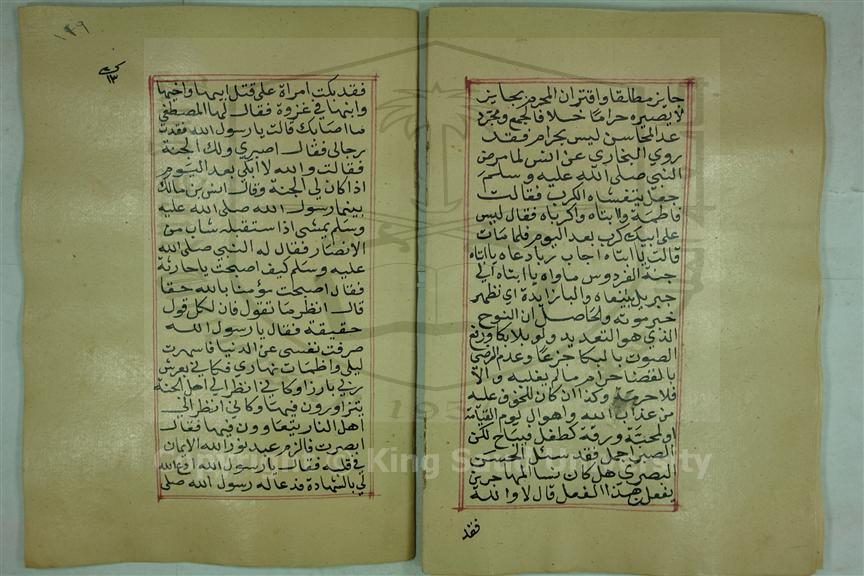 جايز مطلقا واقتران المحرم بجايز
لا يصيره حراما خلافا لجمع ومجرد
عد المحاسن ليس بحرام فقد
روي البخاري عن انس لما مرض
النبي صلى الله عليه وسلم
جعل يتغشاه الكرب فقالت
فاطمة وا ابتاه واكرباه فقال ليس
على ابيك كرب بعد اليوم فلما مات
قالت يا ابتاه اجاب ربا دعاه يا ابتاه
جنة الفردوس ماواه يا ابتاه الي
جبريل ينعاه والباء زايدة اي نظهر
خبر موته والحاصل ان النوح
الذي هو التعديد ولو بلا بكا ورفع
الصوت بالبكا جزعا وعدم الرضى
بالقضا حرام مالم يغلبه والا
فلا حرمة وكذا ان كان للخوف عليه
من عذاب الله واهوال يوم القيامة
او لمحبة ورقة كطفل فيباح لكن
الصبر اجمل فقد سئل الحسن
البصري هل كان نسا المهاجرين
يفعلن هذا الفعل قال لا والله
فقد
١٤٩
١٣
فقد بكت امراة على قتل ابيها واخيها
وابنها في غزوة فقال لها المصطفي
ما اصابك قالت يا رسول الله فقدت
رجالي فقال اصبري ولك الجنة
فقالت والله لا ابكي بعد اليوم
اذا كان لي الجنة وقال انس بن مالك
بينما رسول الله صلى الله عليه
وسلم يمشي اذا ستقبله شاب من
الانصار فقال له النبي صلى الله
عليه وسلم كيف اصبحت يا حارثة
فقال اصبحت مؤمنا بالله حقا
قال انظر ما تقول فان لكل قول
حقيقة فقال يا رسول الله
صرفت نفسي عن الدنيا فاسهرت
ليلي واظمات نهاري فكاني بعرش
ربي بارزا وكاني انظر الي اهل الجنة
يتزاورون فيها وكاني انظر الي
اهل النار يتعاوون فيها فقال
ابصرت فالزم عبد نور الله الايمان
في قلبه فقال يا رسول الله ادع الله
لي بالشهادة فدعا له رسول الله صلى
Copyright © King Saud University
195